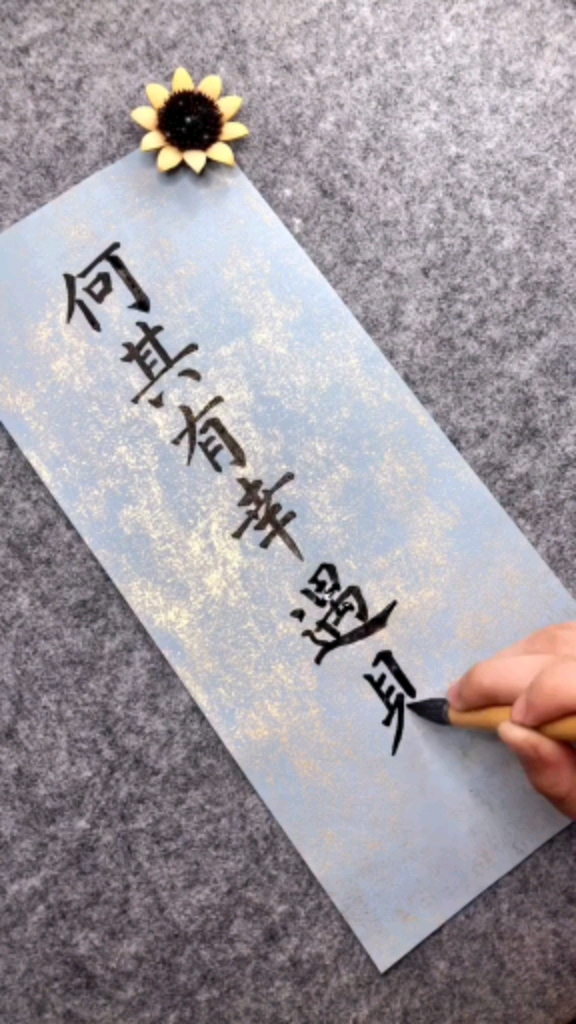 何其有幸遇见